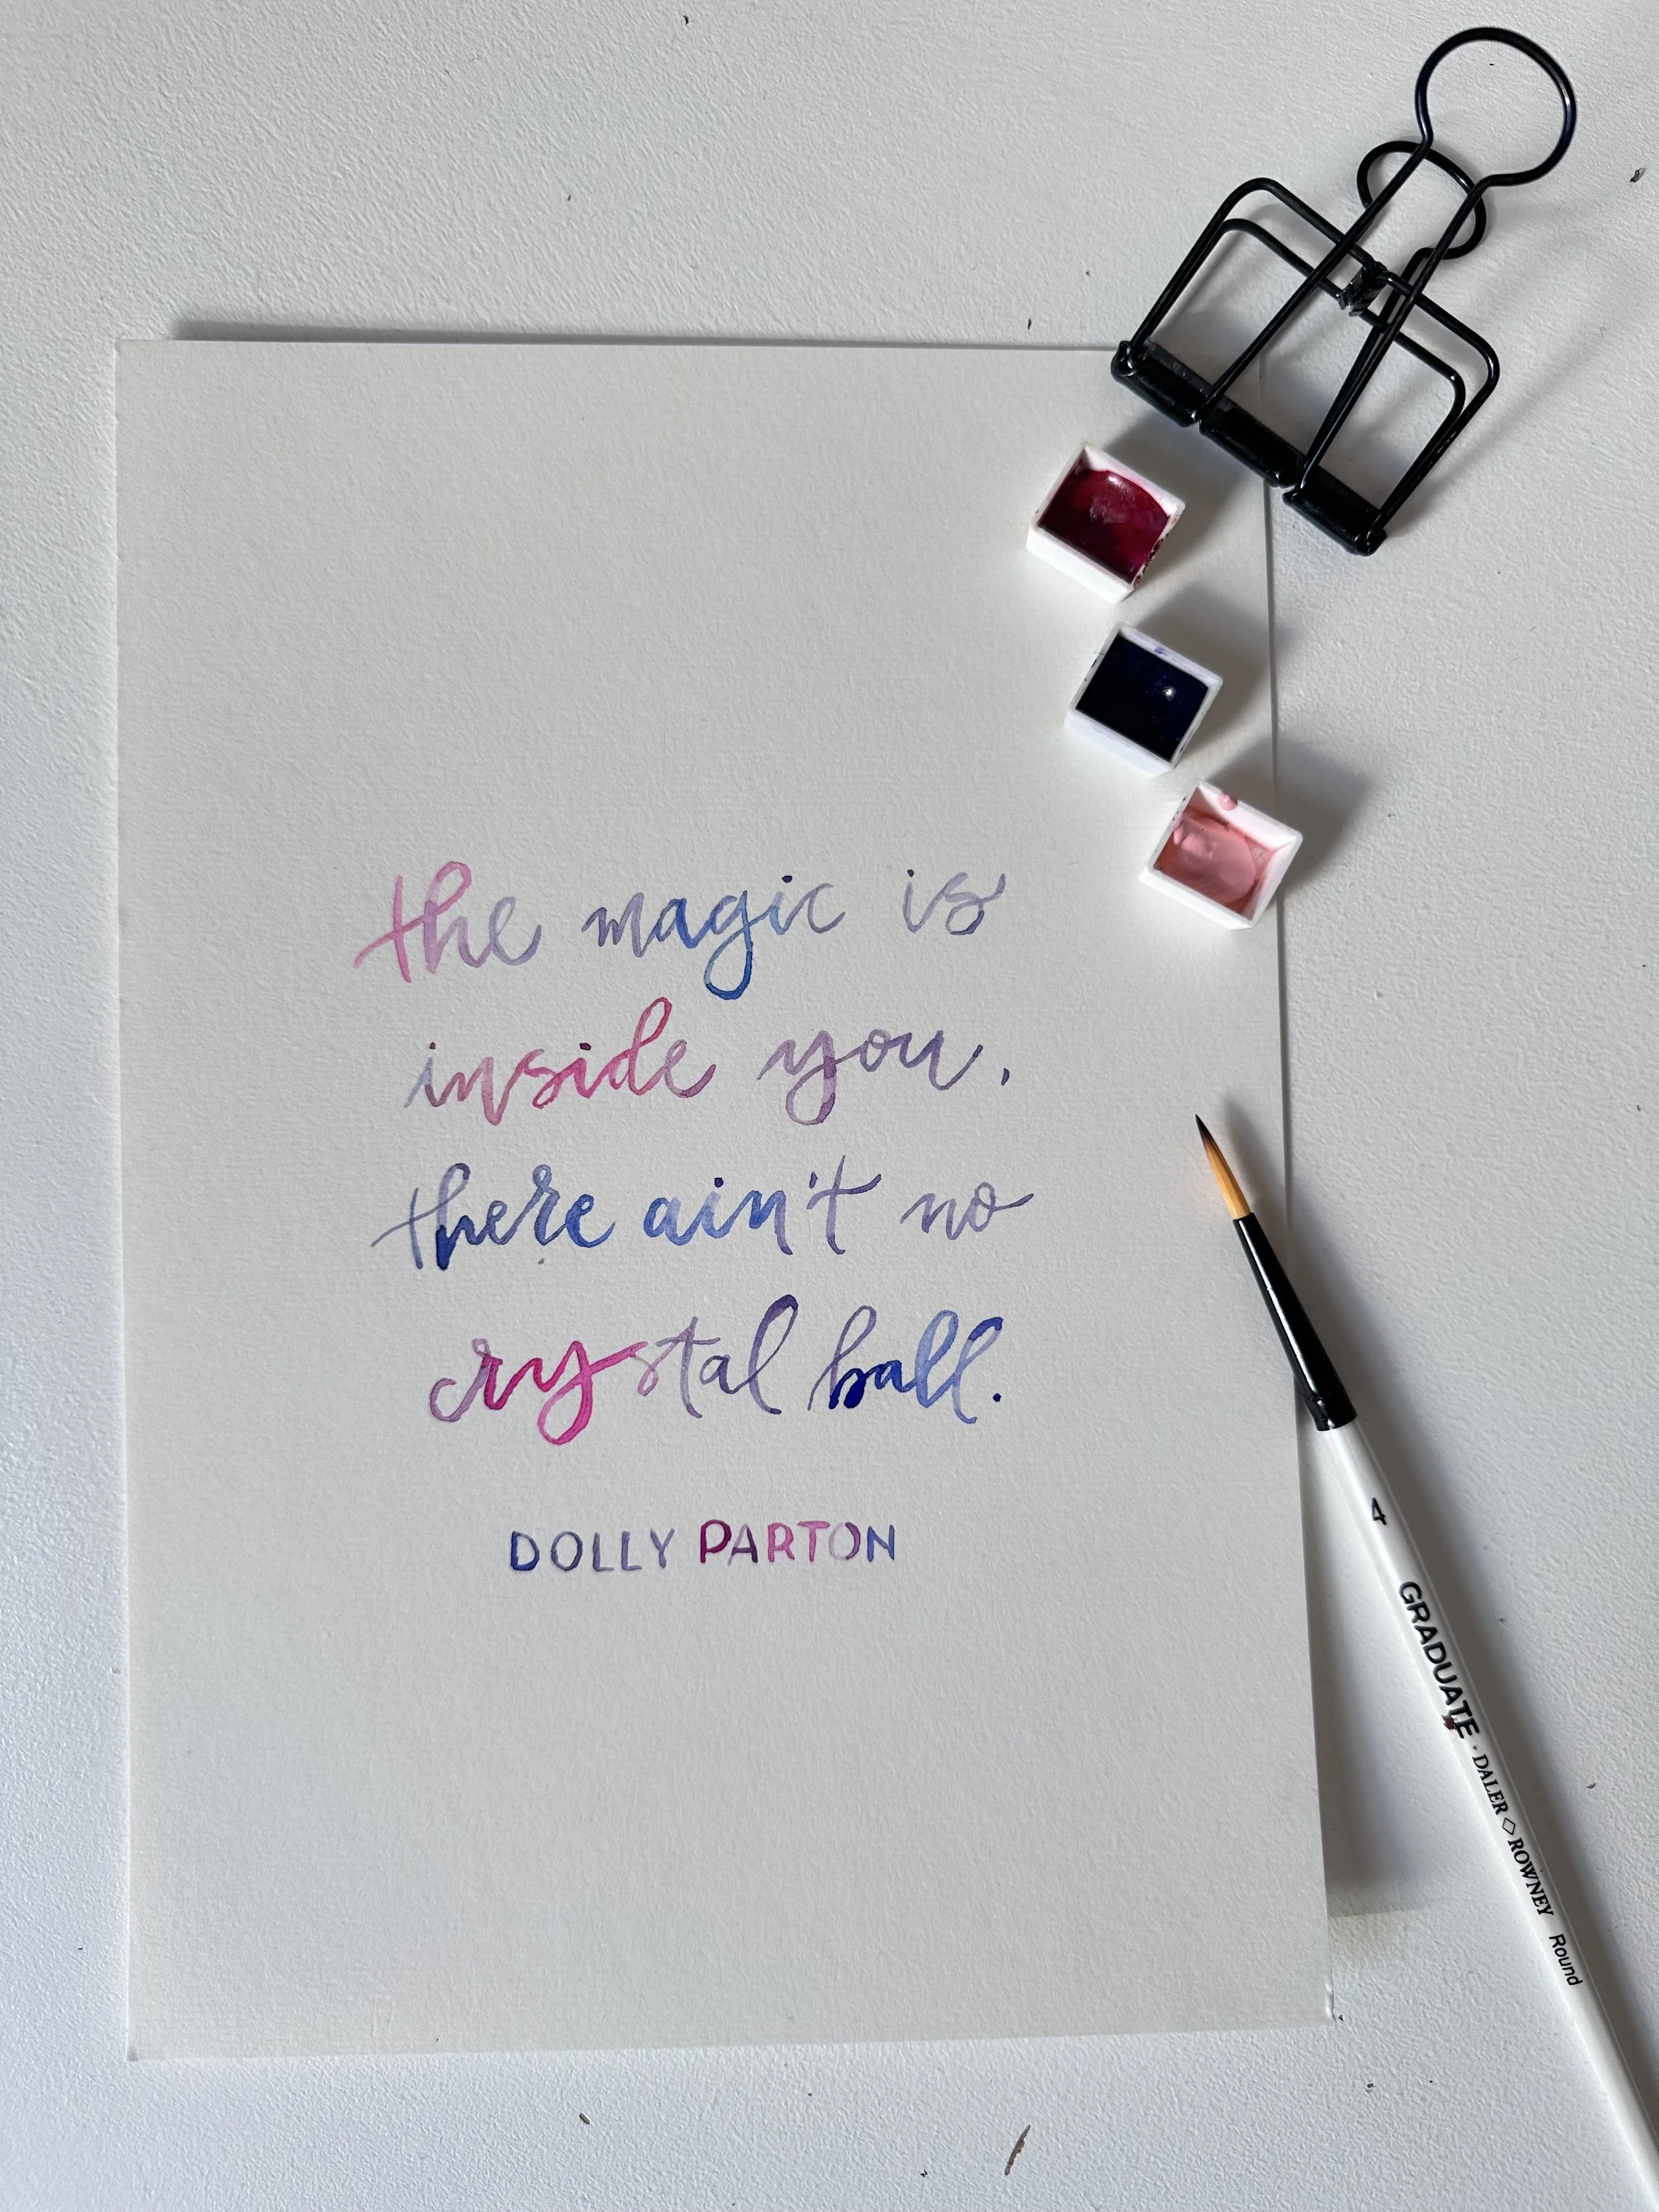 the magic is
inside you,
there ain't no
crystal ball.
DOLLY PARTON
4 GRADUATE · DALER ◇ ROWNEY Round